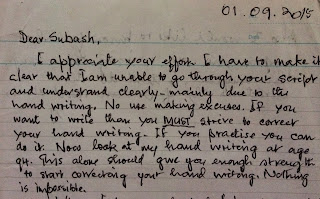 01.09.2015
Dear Subash,
I appreciate your effort. I have to make it
clear that I am unable to go through your script
and understand clearly - mainly due to the
hand writing. No use making excuses. If you
want to write than you MUST strive to correct
your hand writing. If you practise you can
do it. Now look at my hand writing at age
94. This alone should give you enough strength
to start correcting your hand writing. Nothing
is impossible.